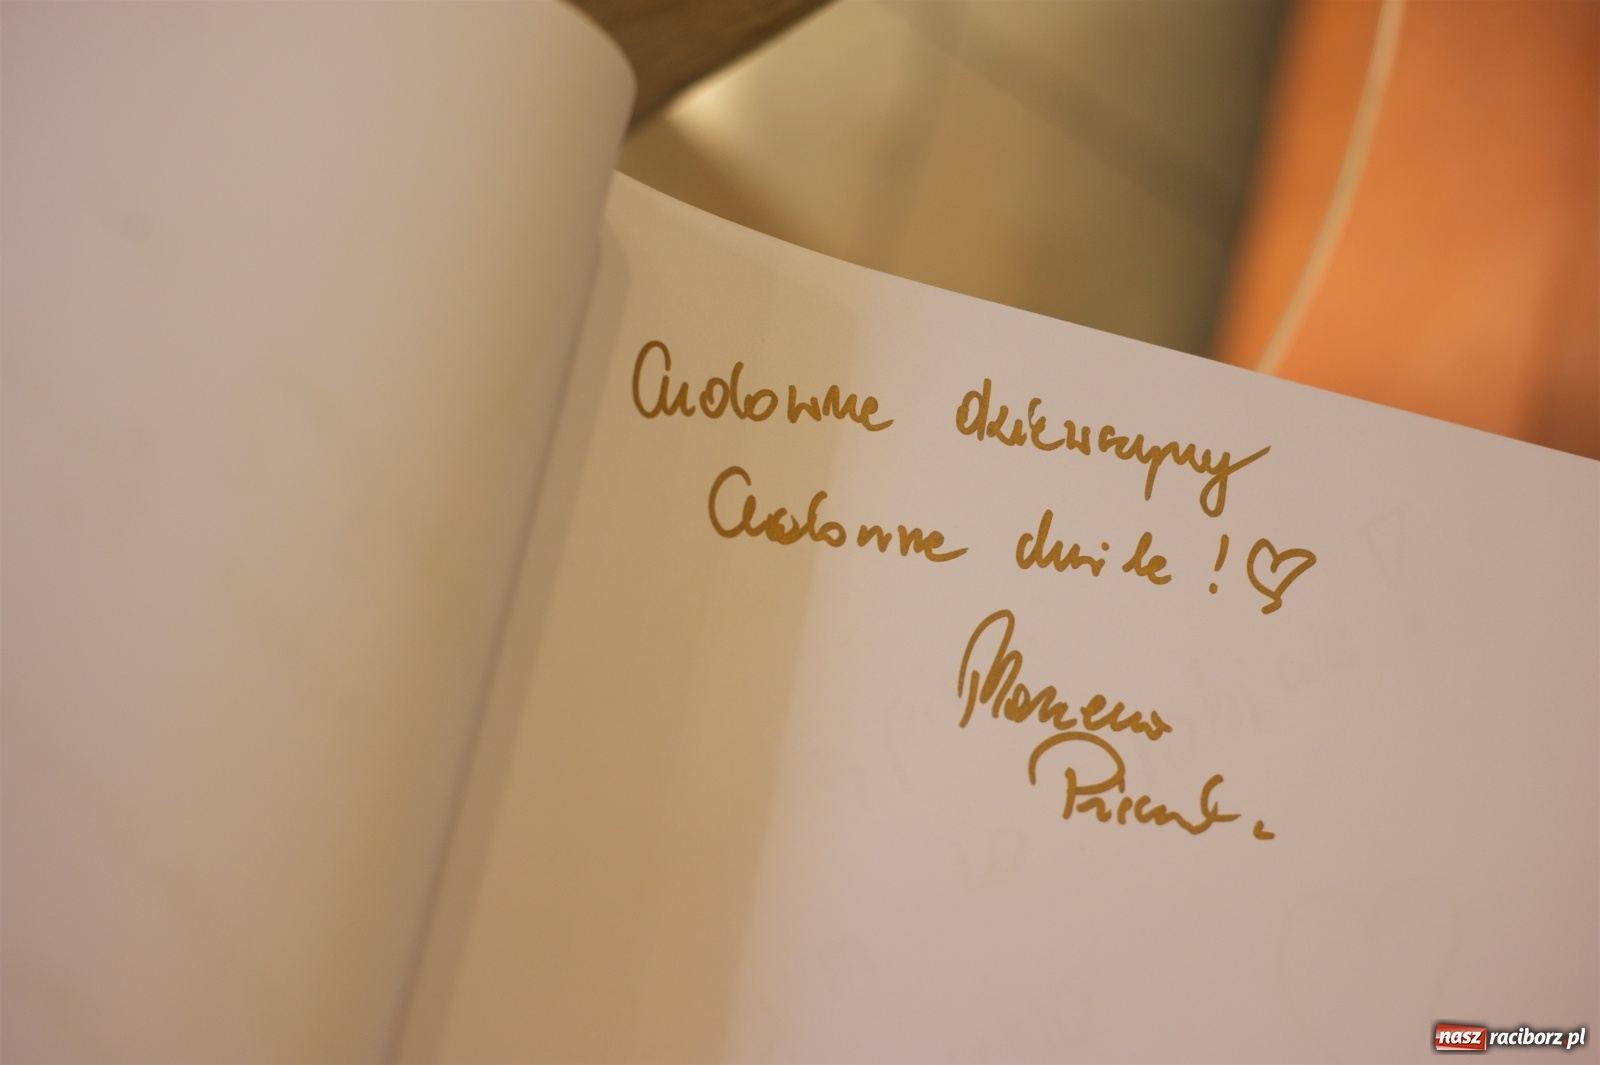 Cudowne dziewczyny
Cudowne chwile!
Marzena
nasz raciborz.pl